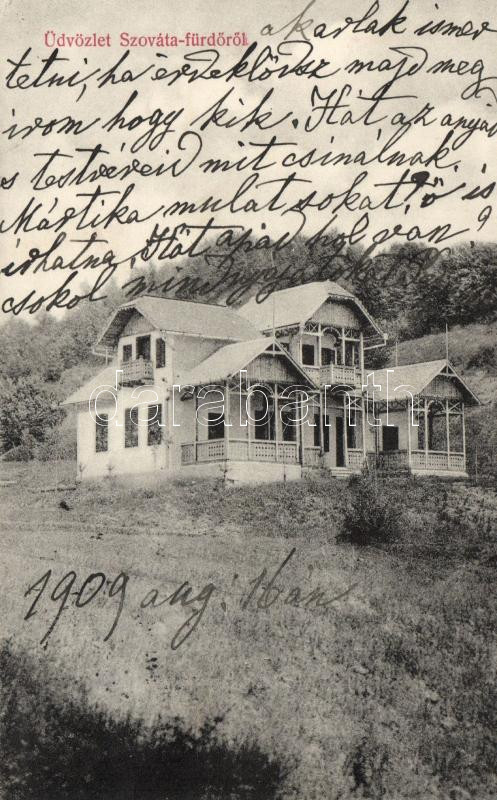 Üdvözlet Szováta-fürdőről
akarlak ismer
tetni, ha érdeklődsz majd meg
irom hogy kik. Hát az anyád
s testvéreid mit csinálnak.
Mártika mulat sokat? ő is
irhatna, Hát apád hol van?
csokol mindnyajatokat
darabanth
1909 aug. 16án